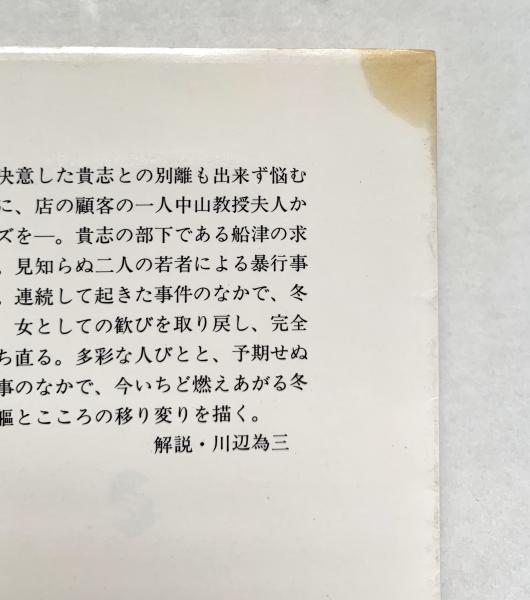 決意した貴志との別離も出来ず悩む
に、店の顧客の一人中山教授夫人か
ズを―。貴志の部下である船津の求
。見知らぬ二人の若者による暴行事
。連続して起きた事件のなかで、冬
女としての歓びを取り戻し、完全
ち直る。多彩な人びとと、予期せぬ
事のなかで、今いちど燃えあがる冬
軀とこころの移り変りを描く。
解説・川辺為三